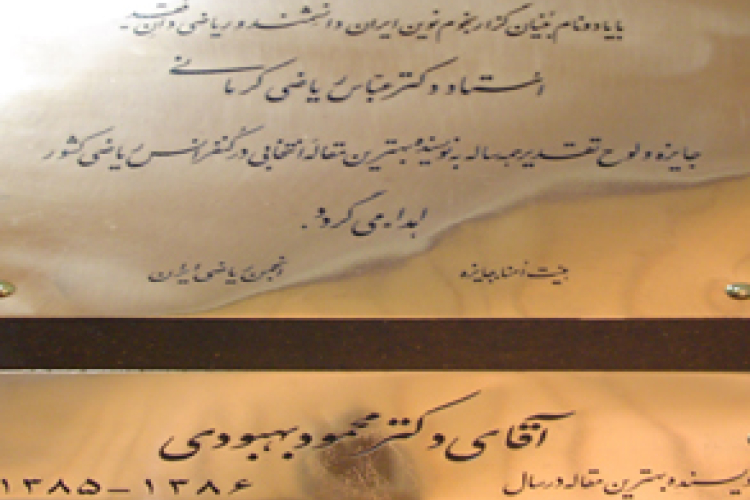 با یاد و نام بنیان گزار نجوم نوین ایران دانشمند و ریاضی دان فقید
استاد دکتر عباس ریاضی کرمانی
جایزه و لوح تقدیر همه ساله به نویسنده بهترین مقاله انتخابی در کنفرانس ریاضی کشور
اهداء می گردد.
هیئت امناء جایزه
انجمن ریاضی ایران
آقای دکتر محمود بهبودی
بهترین مقاله در سال
۱۳۸۵-۱۳۸۶